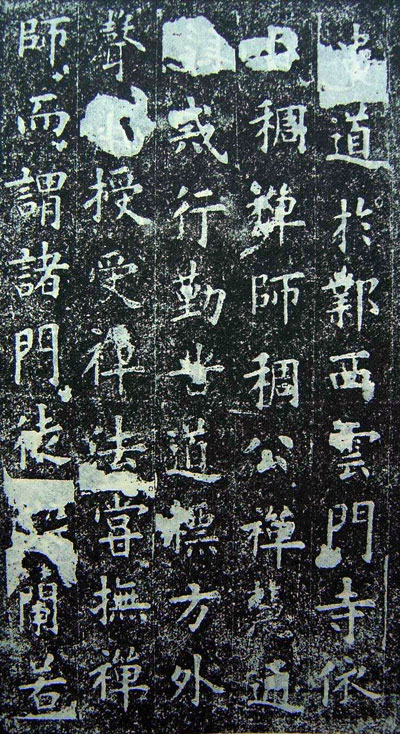 道於鄴西雲門寺依
稠禪師稠公禪慧通
戒行勤苦道標方外
聲授受禪法嘗撫禪
師而謂諸門徒闌若